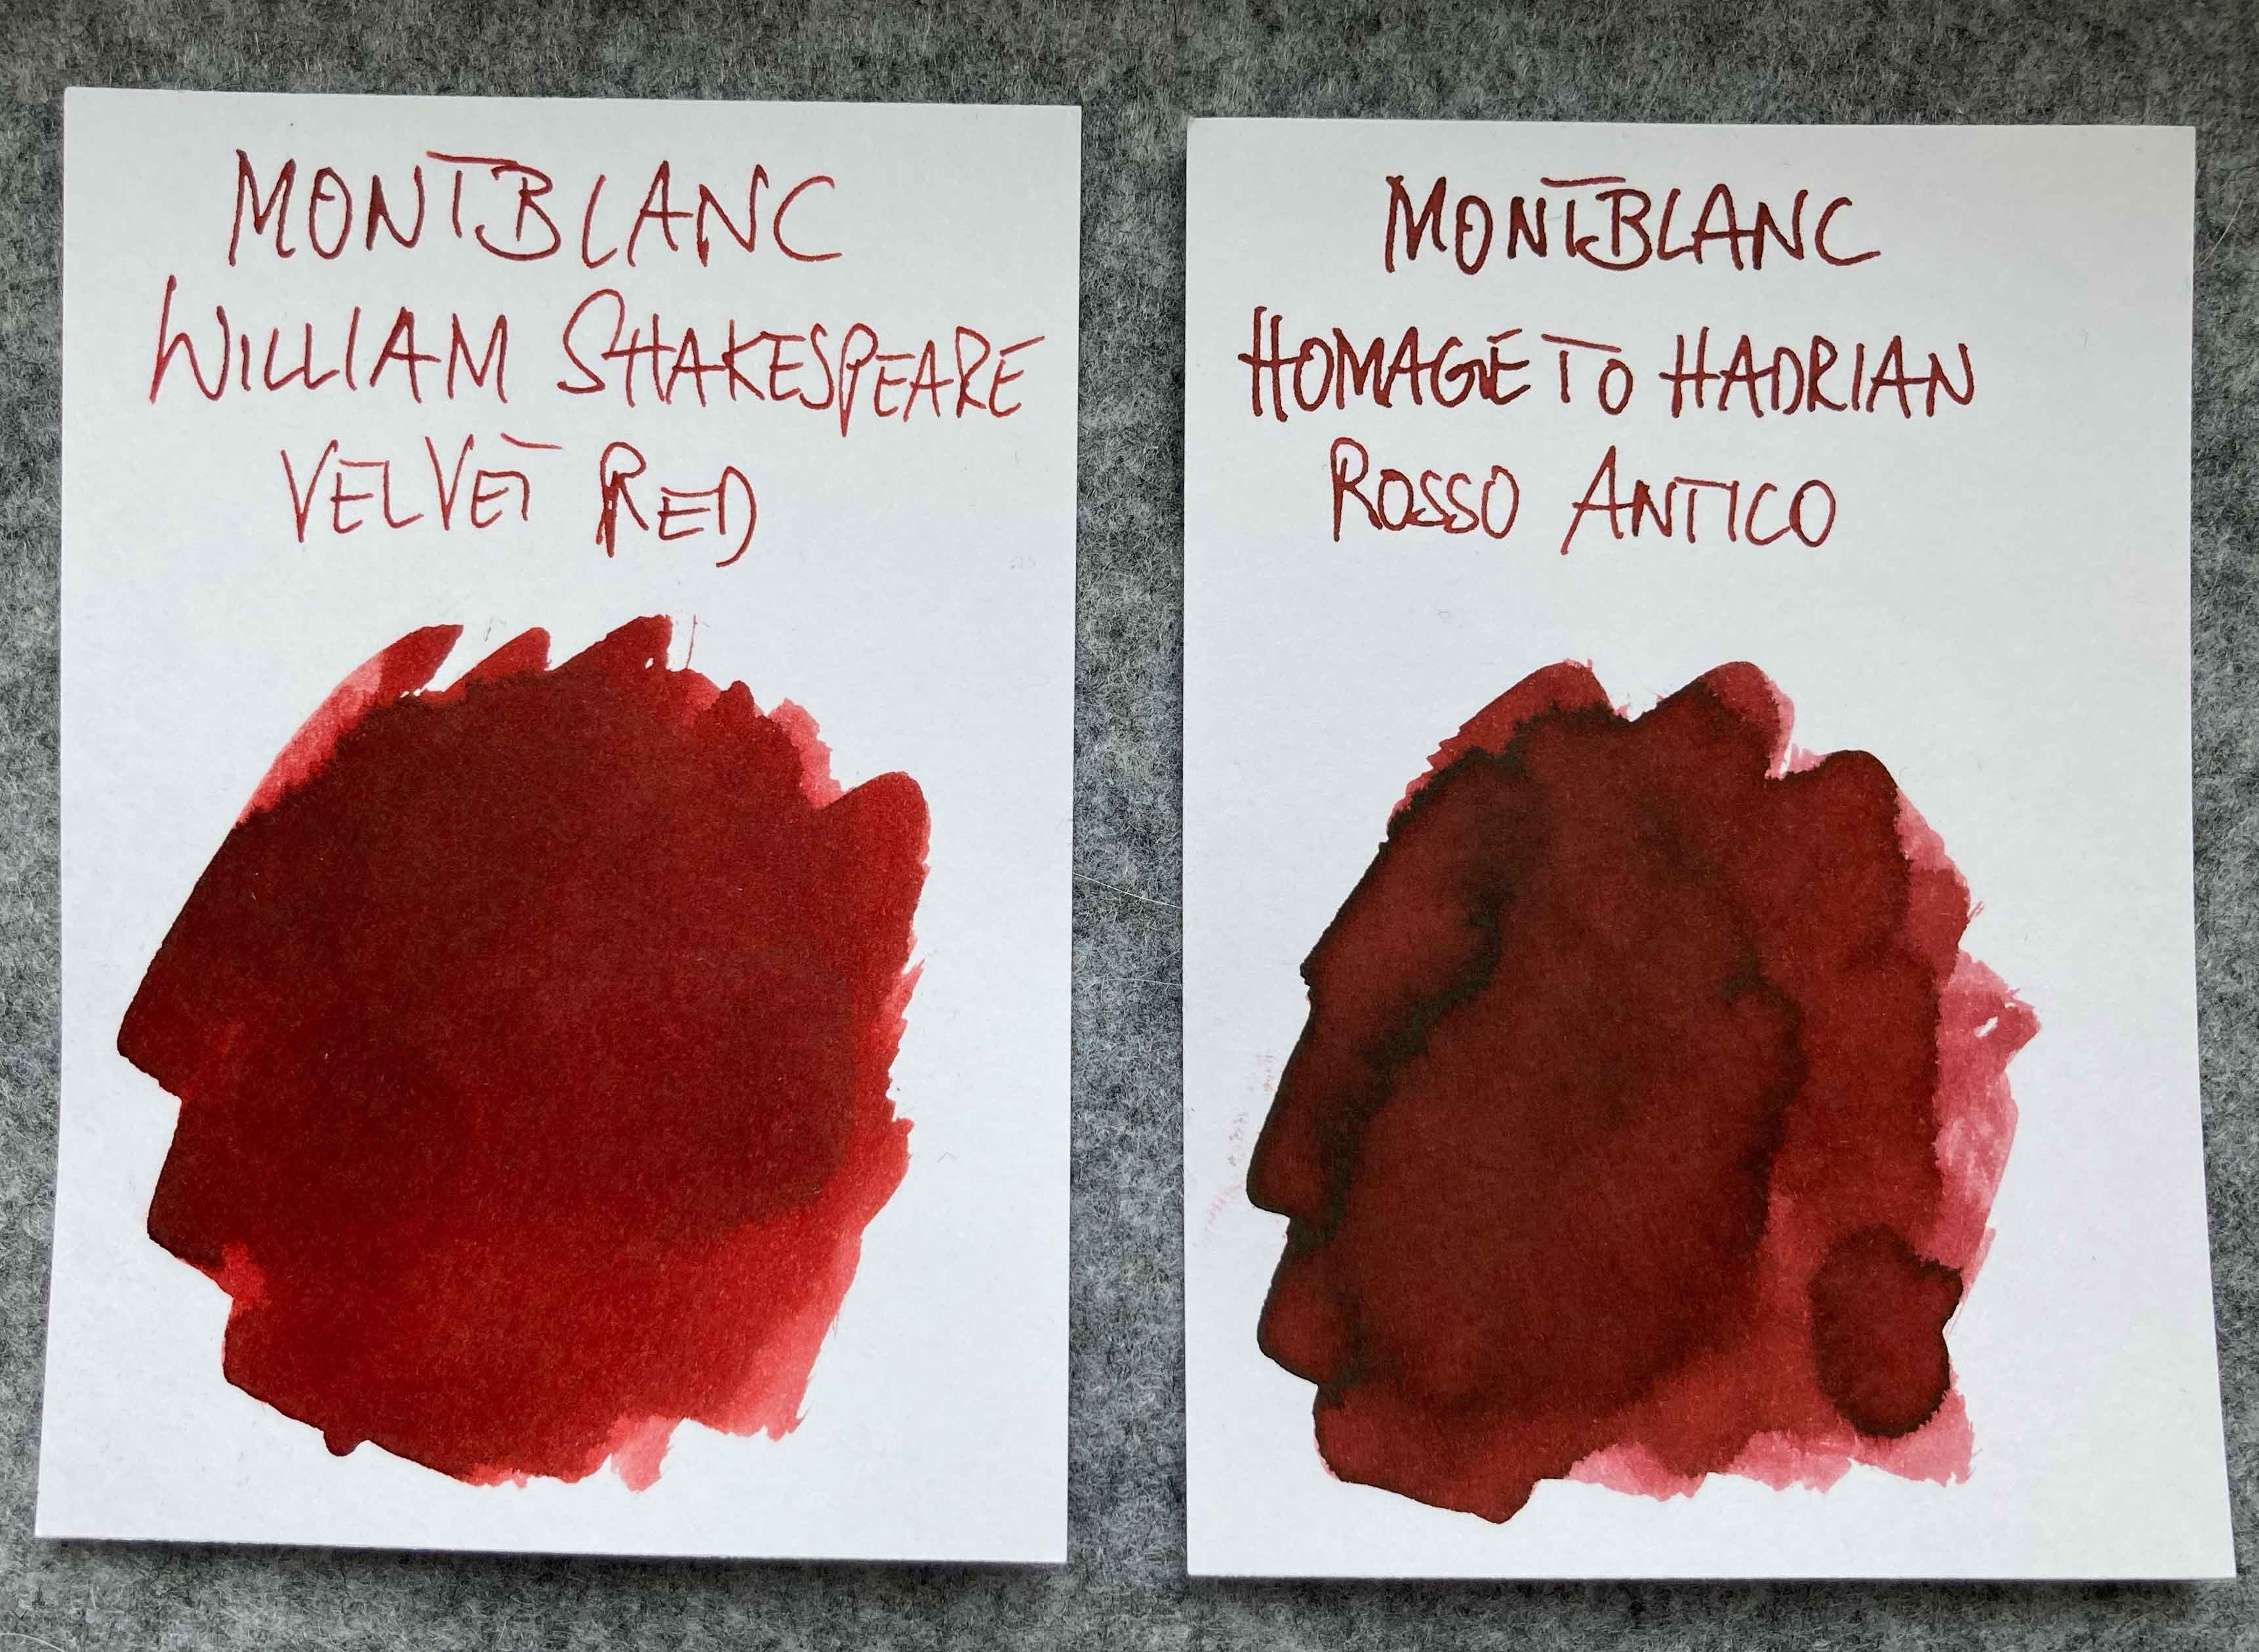 MONTBLANC
WILLIAM SHAKESPEARE
VELVET RED
MONTBLANC
HOMAGE TO HADRIAN
ROSSO ANTICO